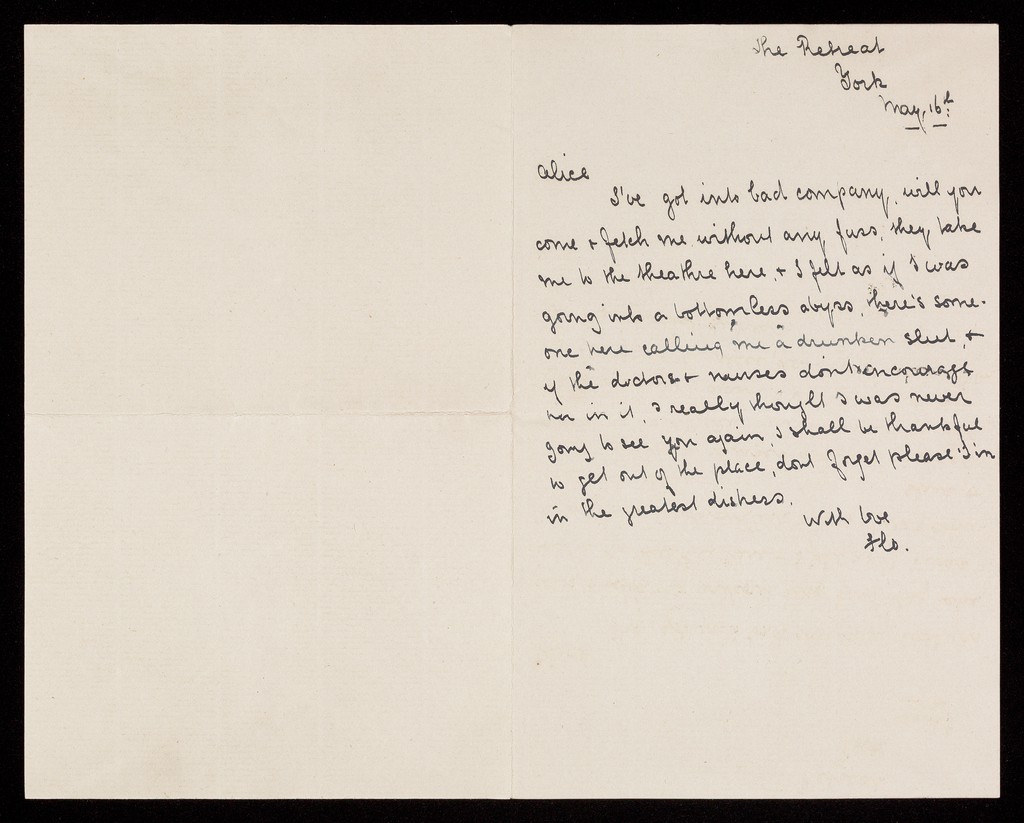 The Retreat
York
May, 16th
Alice
I've got into bad company, will you
come & fetch me without any fuss, they take
me to the theathre here, & I felt as if I was
going into a bottomless abyss, there's some-
one here calling me a drunken slut, &
if the doctors & nurses dont encourage
her in it, I really thought I was never
going to see you again, I shall be thankful
to get out of the place, dont forget please I'm
in the greatest distress.
With love
Flo.